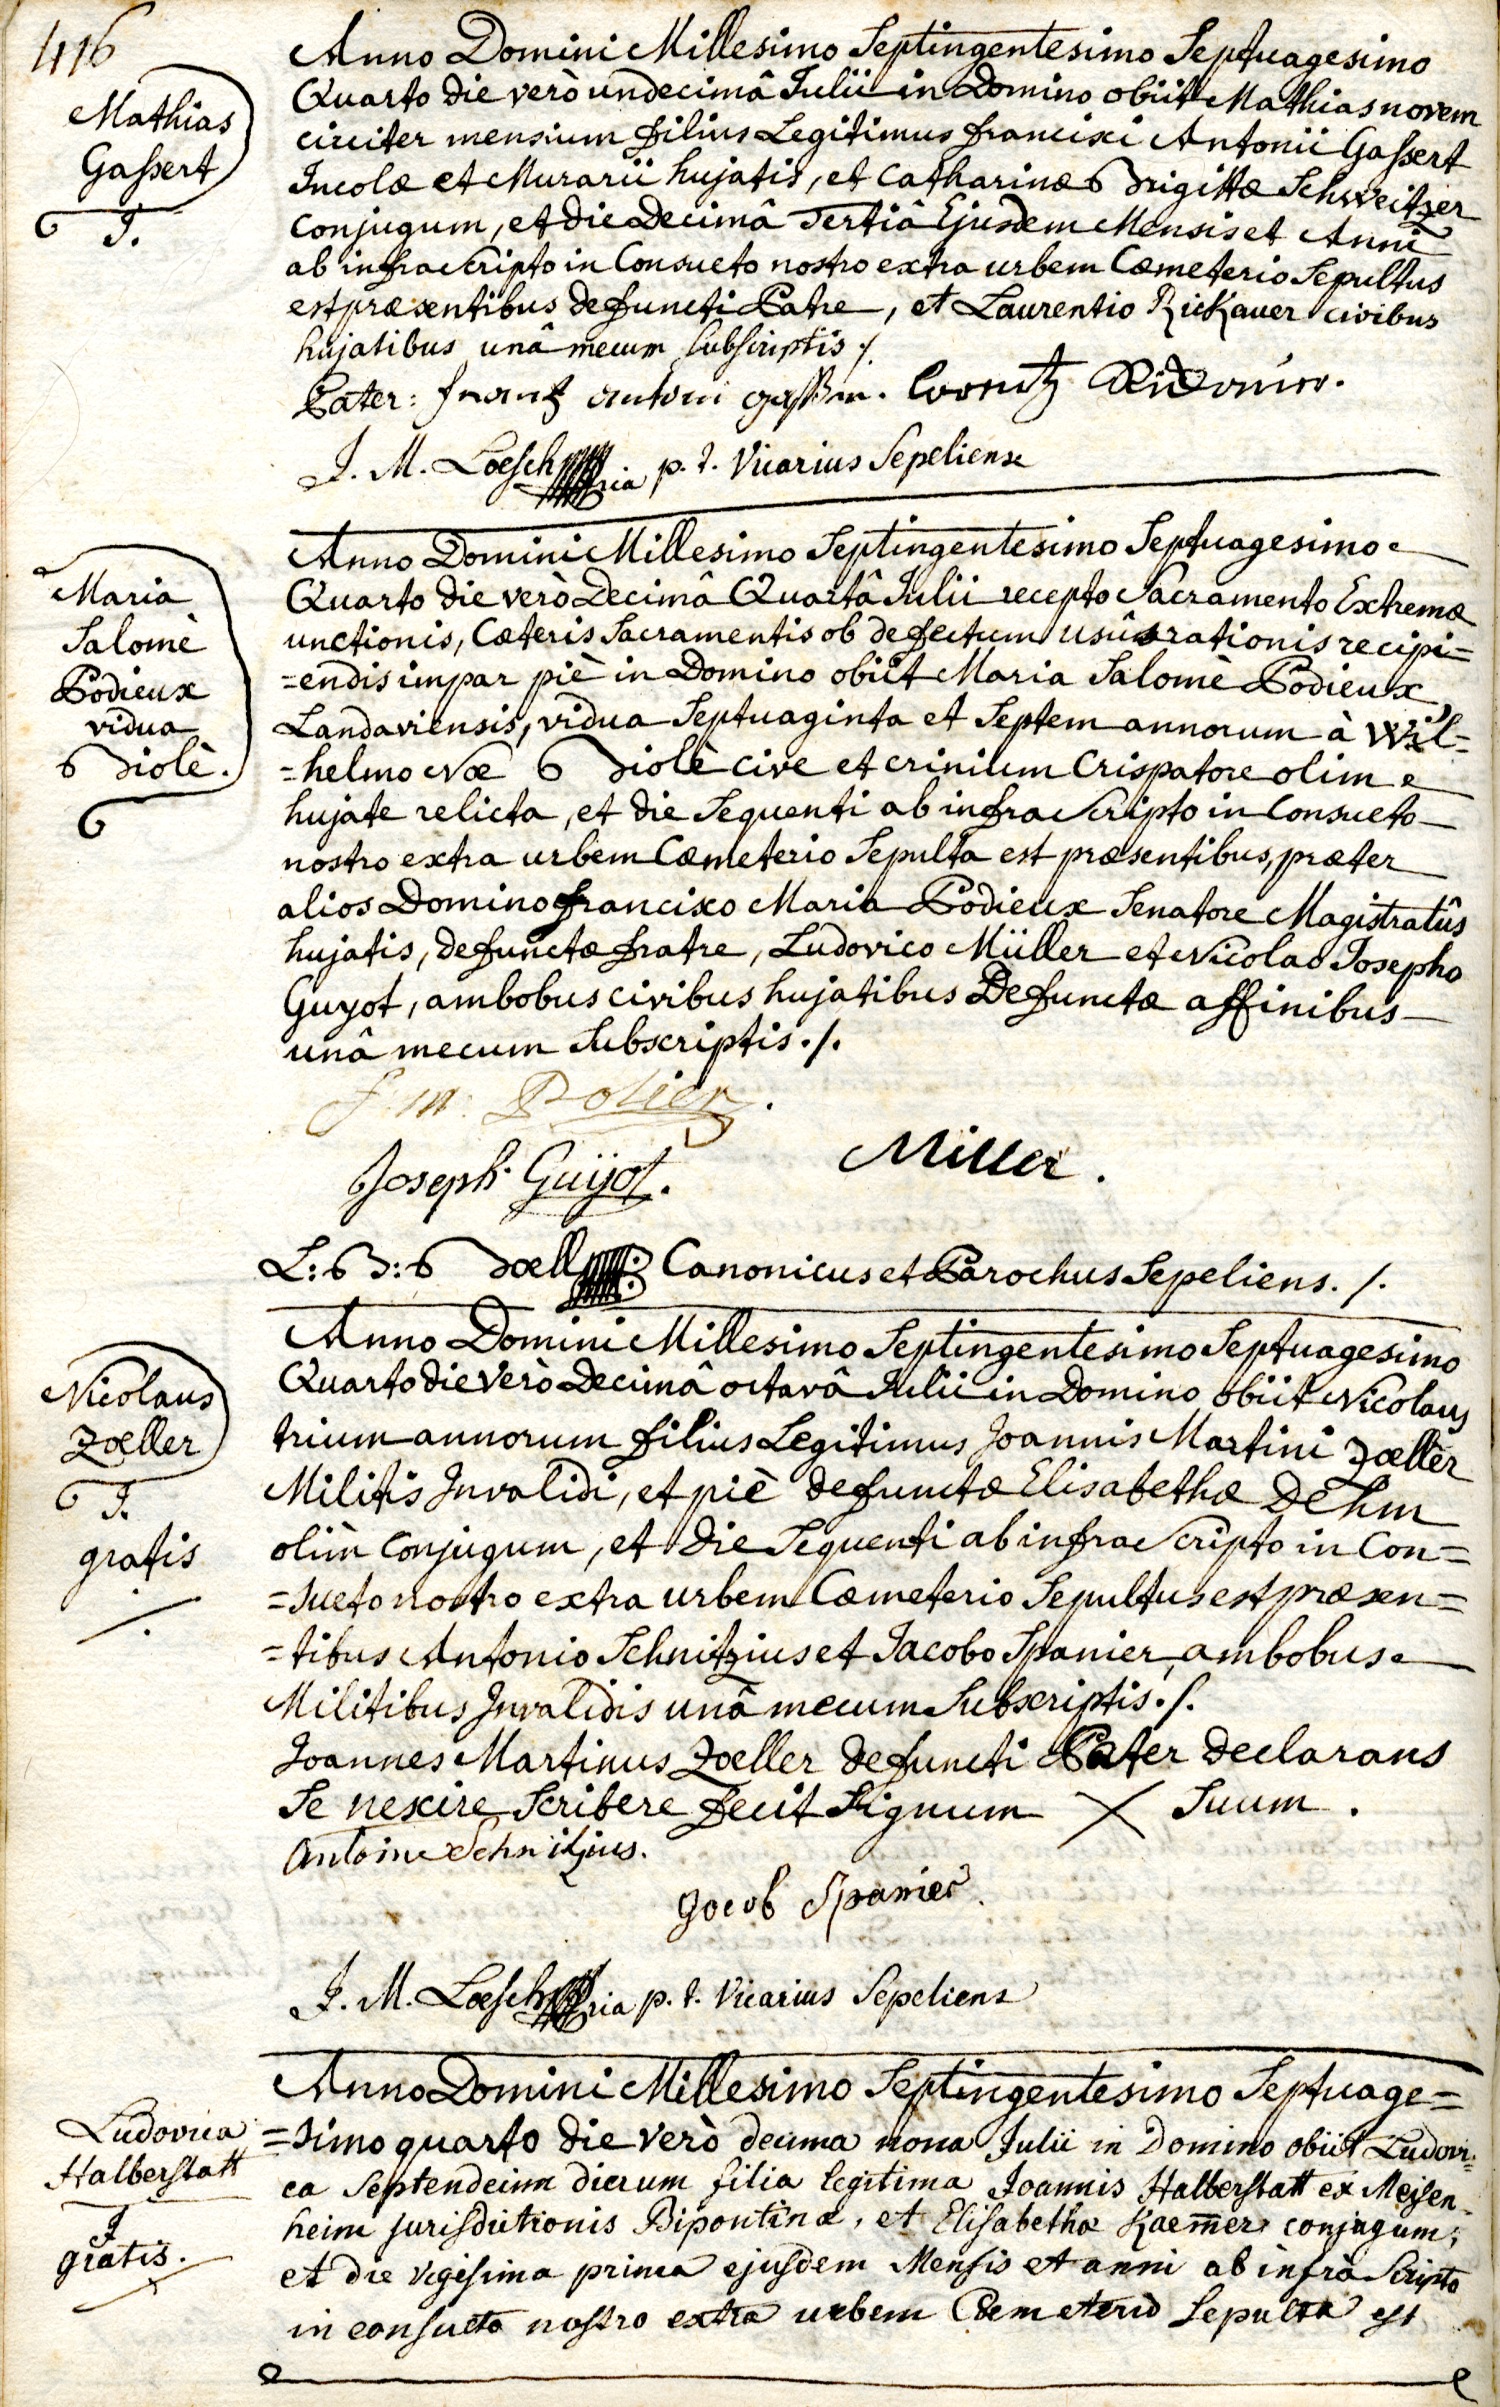 416
Mathias
Gaſsert
J.
Anno Domini Millesimo Septingentesimo Septuagesimo
Quarto die verò undecimâ Julii in Domino obiit Mathias novem
circiter mensium filius Legitimus francisci Antonii Gaſsert
Incolæ et Murarii hujatis, et Catharinæ Brigittæ Schweitzer
conjugum, et die Decimâ Tertiâ Ejusdem Mensis et Anni
ab infra scripto in Consueto nostro extra urbem Cœmeterio Sepultus
est præsentibus defuncti Patre, et Laurentio Rickauer civibus
hujatibus unâ mecum ſubſcriptis ./.
Pater: frantz antoni gaſſert. Lorentz
J. M. Loeſch p. t. Vicarius Sepeliens
Maria
Salomè
Podieux
vidua
Briolè.
Anno Domini Millesimo Septingentesimo Septuagesimo
Quarto die verò Decimâ Quartâ Julii recepto Sacramento Extremæ
unctionis, Cæteris Sacramentis ob defectum usûs rationis recipi=
=endis impar piè in Domino obiit Maria Salomè Podieux
Landaviensis, vidua Septuaginta et Septem annorum à Wil=
=helmo Noe Briolè cive et crinium Crispatore olim
hujate relicta, et die Sequenti ab infra scripto in Consueto
nostro extra urbem Cœmeterio Sepulta est præsentibus, præter
alios Domino francisco Maria Podieux Senatore Magistratûs
hujatis, defunctæ fratre, Ludovico Müller et Nicolao Josepho
Guyot, ambobus civibus hujatibus Defunctæ affinibus
unâ mecum Subscriptis ./.
f. m. Podier.
Miller.
Joseph Guijot.
L: B: Brœll Canonicus et Parochus Sepeliens ./.
Nicolaus
Zœller
J.
gratis
Anno Domini Millesimo Septingentesimo Septuagesimo
Quarto die Verò Decimâ octavâ Julii in Domino obiit Nicolaus
trium annorum filius Legitimus Joannis Martini Zœller
Militis Invalidi, et piè defunctæ Elisabethæ Dehm
olim Conjugum, et die Sequenti ab infra scripto in Con=
=sueto nostro extra urbem Cœmeterio Sepultus est præsen=
=tibus Antonio Schnitzius et Jacobo Spanier ambobus
Militibus Invalidis unâ mecum Subscriptis ./.
Joannes Martinus Zoeller defuncti Pater declarans
Se nescire Scribere fecit Signum X Suum.
Antoine Schnitzius.
Jocob Spanier.
J. M. Loeſch p. t. Vicarius Sepeliens
Ludovica
Halberſtatt
J
gratis.
Anno Domini Millesimo Septingentesimo Septuage=
=simo quarto die verò decima nona Julii in Domino obiit Ludovi=
ca Septendecim dierum filia legitima Joannis Halberſtatt ex Meiſen=
heim jurisdictionis Bipontinæ, et Eliſabethæ Kaem̄er conjugum,
et die vigeſima prima ejuſdem Menſis et anni ab infrà Scripto
in conſueto noſtro extra urbem Cœmeterio Sepulta eſt